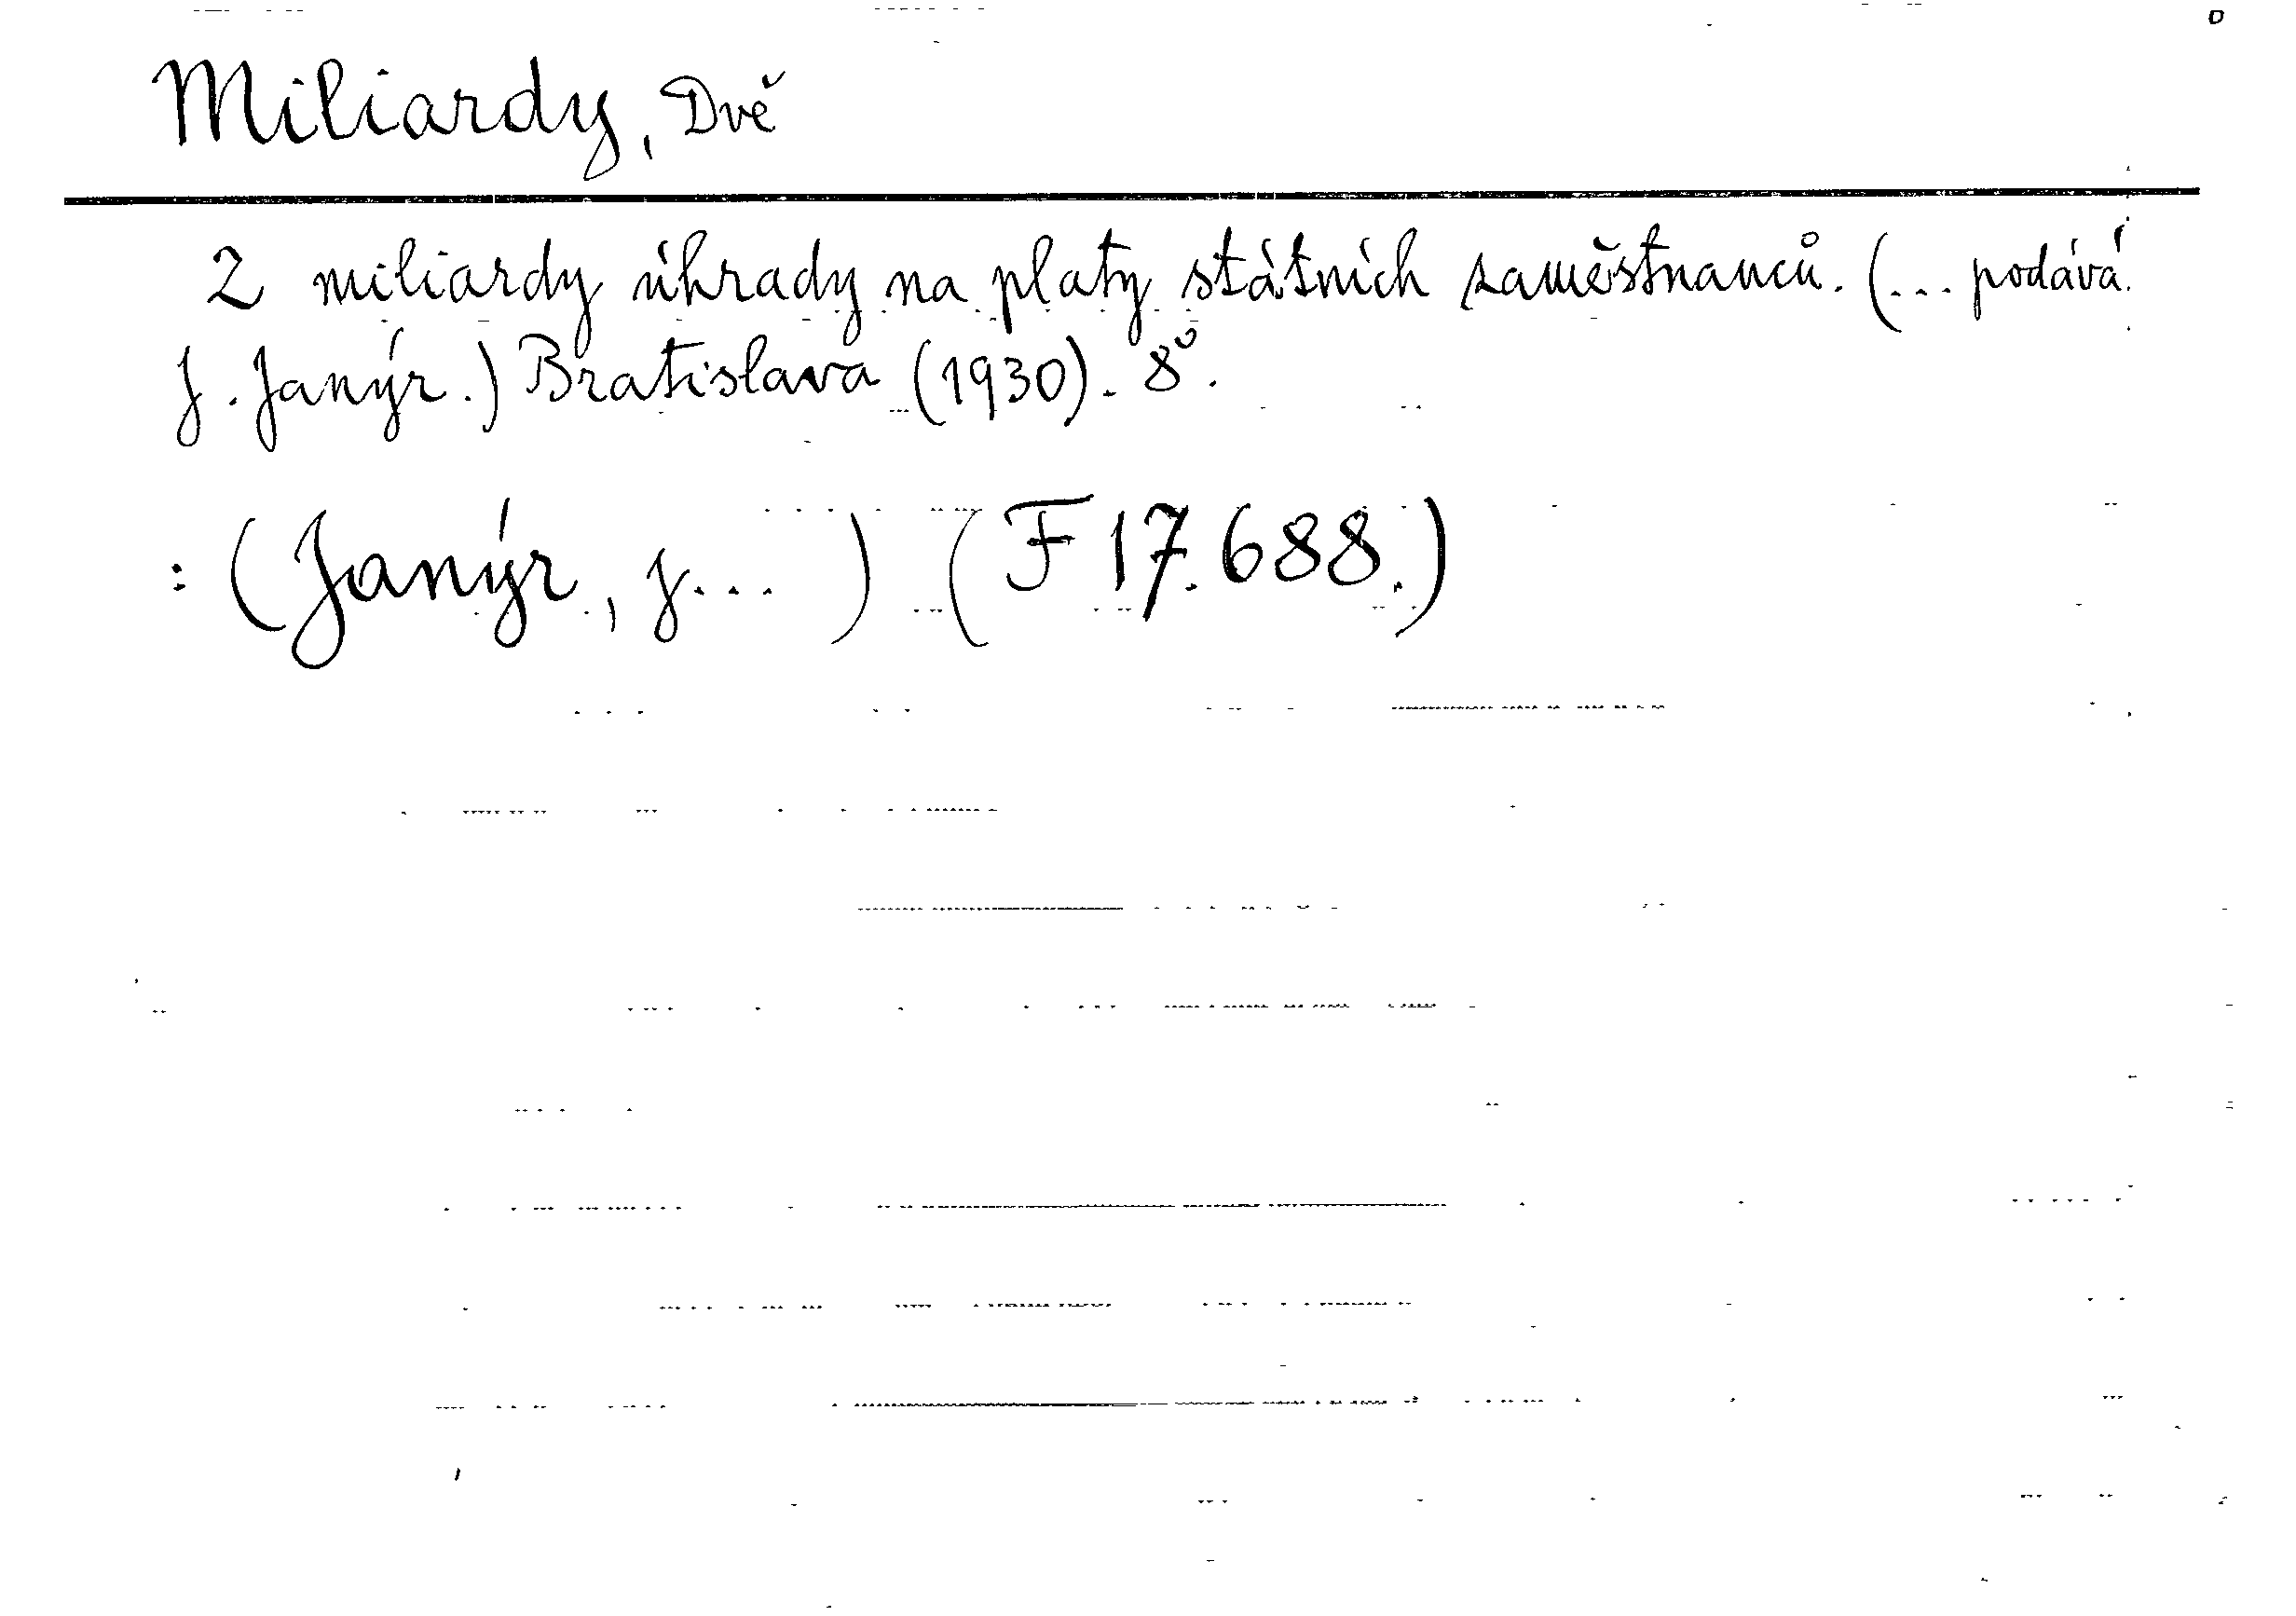 Miliardy, Dvě
2 miliardy úhrady na platy státních zaměstnanců. (... podává
J. Janýr.) Bratislava (1930). 8°.
: (Janýr, J... ) (F 17.688.)